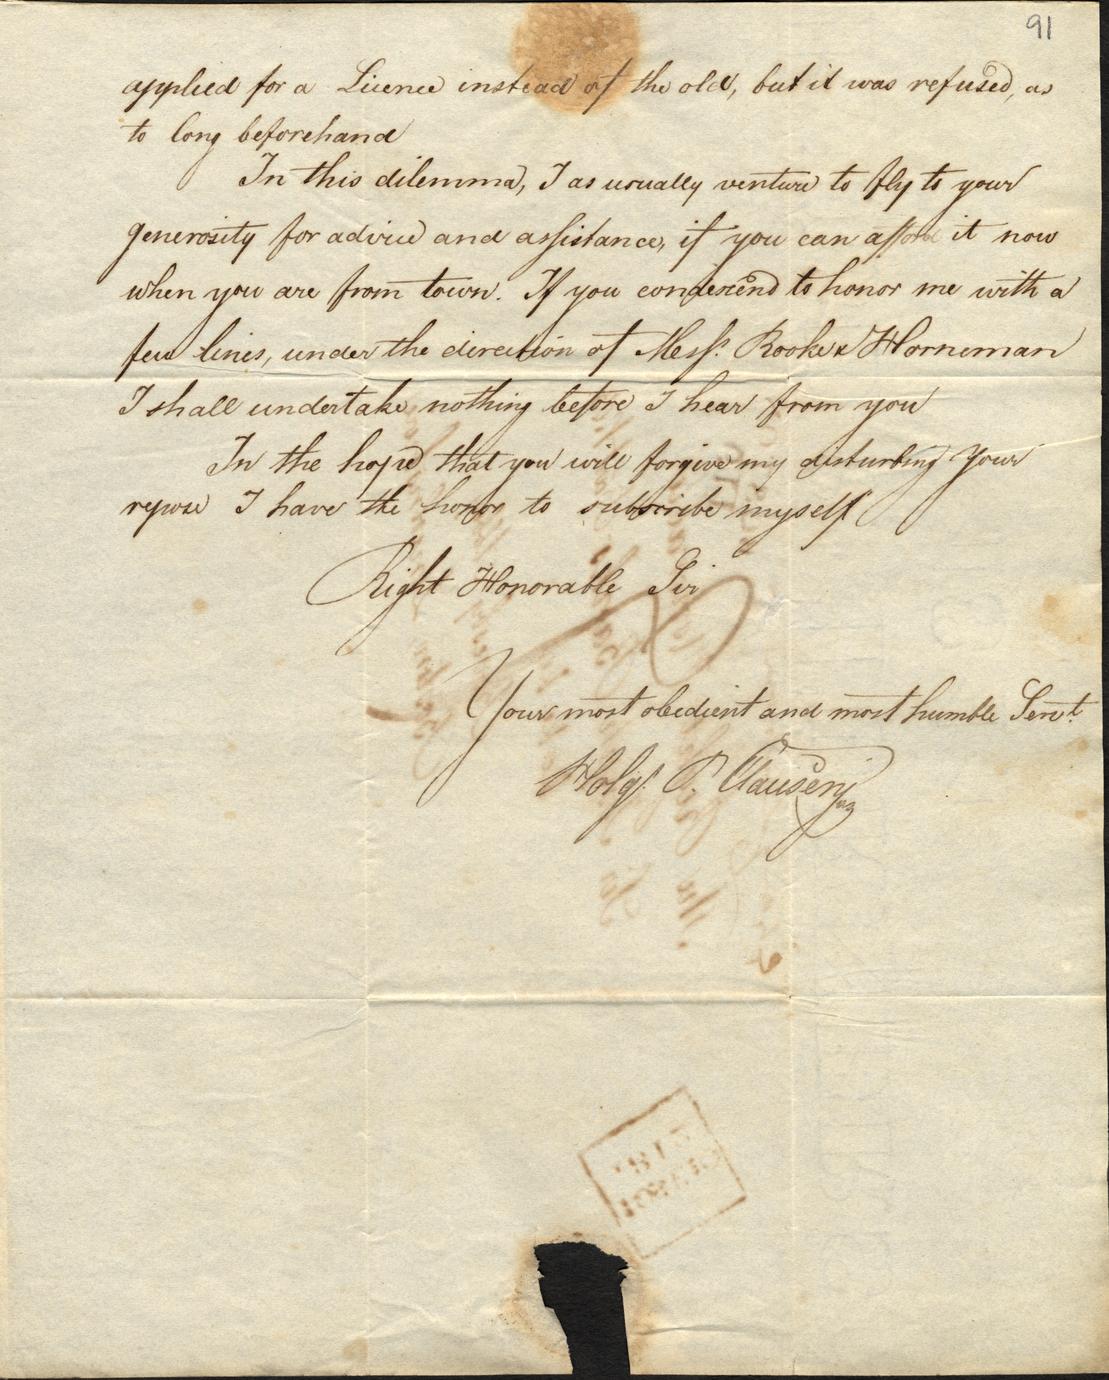 91
applied for a Licence instead of the old, but it was refused, as
to long beforehand
In this dilemma, I as usually venture to fly to your
generosity for advice and assistance, if you can afford it now
when you are from town. If you condescend to honor me with a
few lines, under the direction of Messs. Rooke & Horneman
I shall undertake nothing before I hear from you
In the hope that you will forgive my disturbing Your
repose I have the honor to subscribe myself
Right Honorable Sir
Your most obedient and most humble Servt.
Holgr. P. Clausen